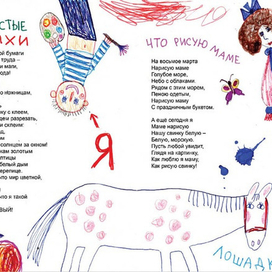 СТЫЕ
ХИ
ой бумаги
труда –
и маги,
ода!
ку с клеем,
дем разрезать,
и склеим:
солнцем за окном!
кам золотым
птицы
белый дым
черепице.
то мир цветной,
то я такой
вый!
Я
ЧТО РИСУЮ МАМЕ
На восьмое марта
Нарисую маме
Голубое море,
Небо с облаками.
Рядом с этим морем,
Пеною одетым,
Нарисую маму
С праздничным букетом.
А ещё сегодня я
Маме нарисую
Нашу свинку белую –
Белую, морскую.
Пусть любой увидит,
Глядя на картинку,
Как люблю я маму,
Как рисую свинку!
ЛОШАДК